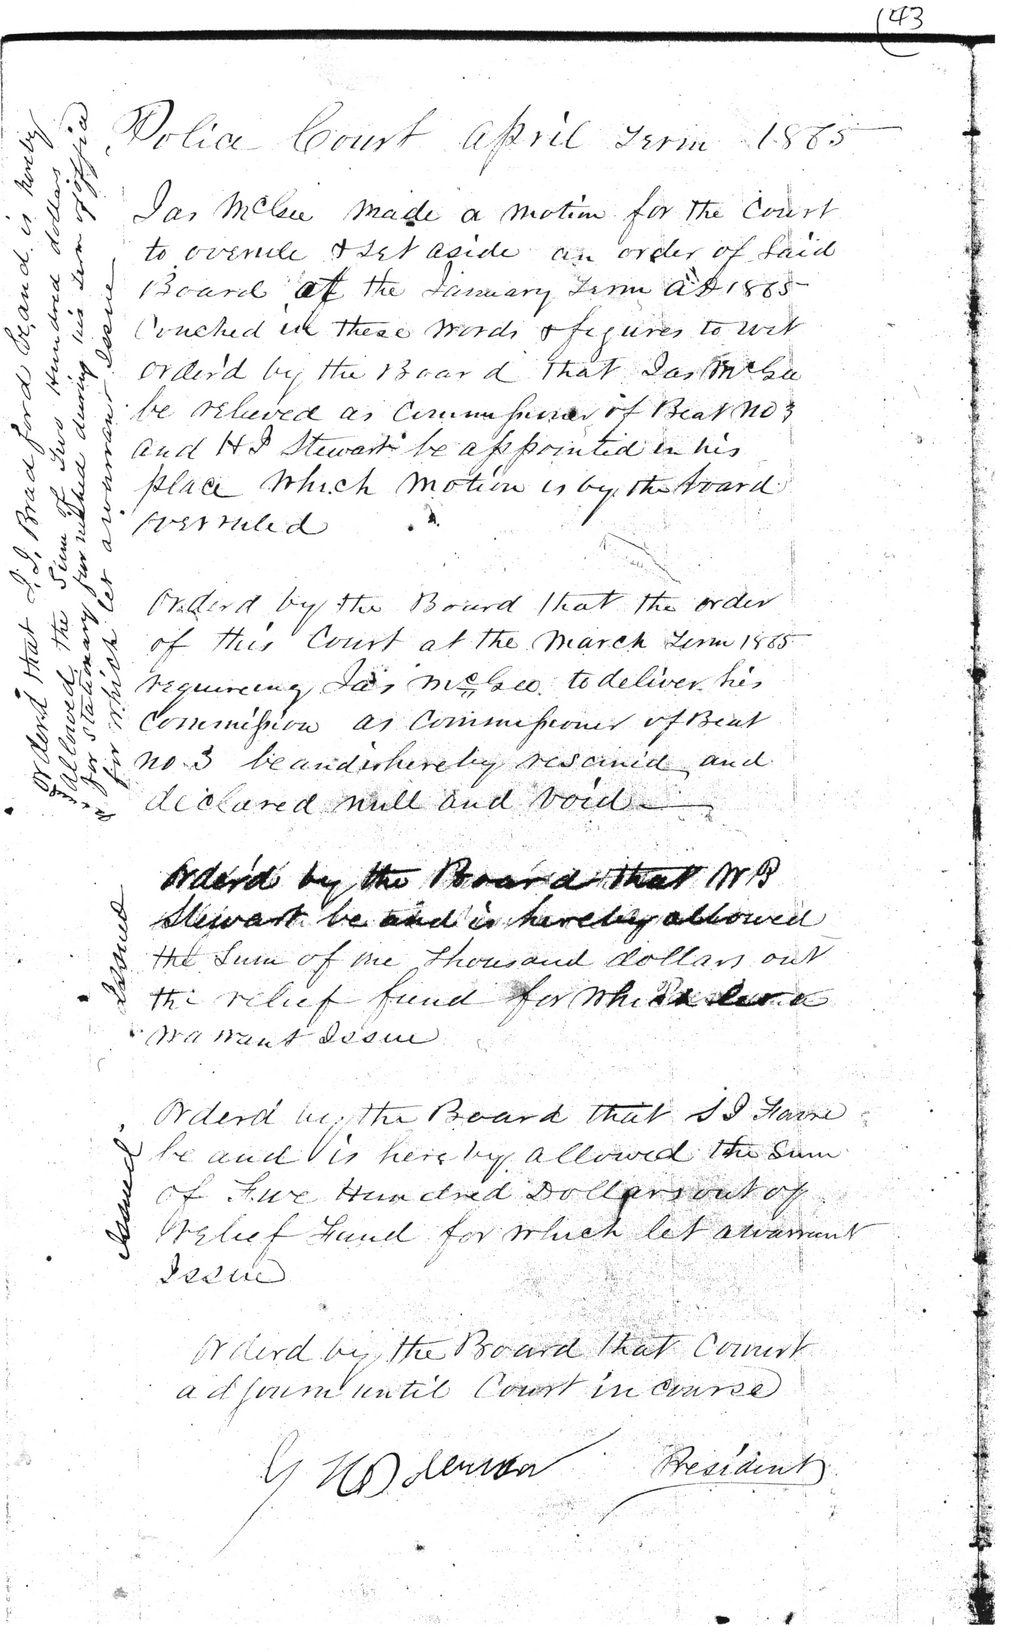 43
Police Court April Term 1865
Jas McGee made a motion for the Court
to overule & set aside an order of Said
Board at the January Term AD 1865
Couched in these words & figures to wit
Order'd by the Board that Jas McGee
be relieved as Commissioner of Beat no 3
and H J Stewart be appointed in his
place which motion is by the board
overruled
Orderd by the Board that the order
of this Court at the March Term 1865
requireing Jas McGee to deliver his
Commission as Commissioner of Beat
no 3 be and is hereby rescinid and
declared null and void
Order'd by the Board that W B
Stewart be and is hereby allowed
the Sum of one Thousand dollars out
the relief fund for which let a
warrant Issue
Order'd by the Board that S J Favre
be and is hereby allowed the Sum
of Five Hundred Dollars out of
Relief Fund for which let a warrant
Issue
Orderd by the Board that Court
adjourn until Court in course
President
orderd that J. J. Bradford be and is hereby
allowed the Sum of Two Hundred dollars
for stationary furnished during his term of office
for which let a warrant Issue
Issued
Issued